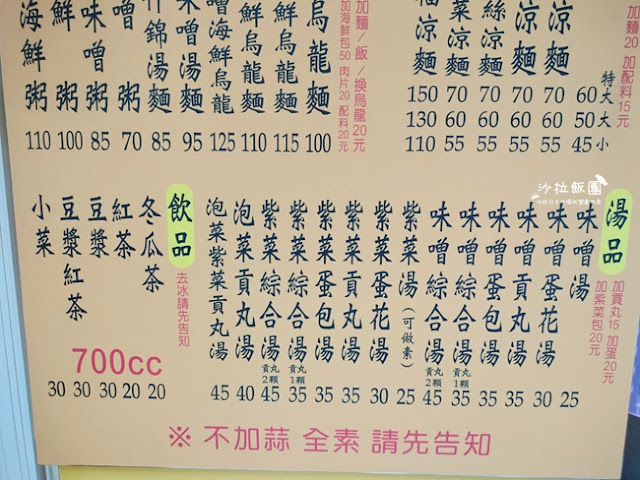 加麵20 加配料15元
涼麵
涼麵
絲涼麵
菜涼麵
涼麵
特大 大 小
150 70 70 70 70 60
130 60 60 60 60 50
110 55 55 55 55 45
加麵/飯/換烏龍20元
加海鮮包50 肉片20 配料20元
烏龍麵 100
海鮮烏龍麵 115
鮮烏龍麵 110
噌海鮮烏龍 125
味噌湯麵 95
什錦湯麵 85
噌粥 70
味噌粥 85
鮮粥 100
海鮮粥 110
沙拉飯團
湯品
加貢丸15 加蛋20元
加紫菜包20元
味噌湯 25
味噌蛋花湯 30
味噌貢丸湯 35
味噌蛋包湯 35
味噌綜合湯 貢丸1顆 35
味噌綜合湯 貢丸2顆 45
紫菜湯(可做素) 25
紫菜蛋花湯 30
紫菜貢丸湯 35
紫菜蛋包湯 35
紫菜綜合湯 貢丸1顆 35
紫菜綜合湯 貢丸2顆 45
泡菜貢丸湯 40
泡菜紫菜貢丸湯 45
飲品
去冰請先告知
冬瓜茶 20
紅茶 20
豆漿 30
豆漿紅茶 30
小菜 30
700cc
※ 不加蒜 全素 請先告知